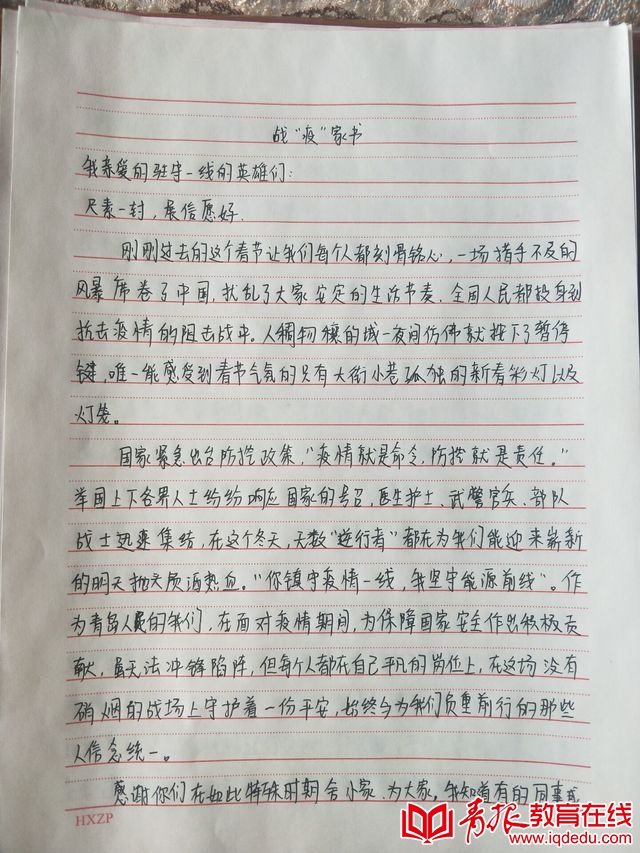 战“疫”家书
我亲爱的驻守一线的英雄们:
尺素一封，展信愿好.
刚刚过去的这个春节让我们每个人都刻骨铭心，一场措手不及的
风暴席卷了中国，扰乱了大家安定的生活节奏、全国人民都投身到
抗击疫情的阻击战中。人稠物穰的城一夜间仿佛就按下了暂停
键，唯一能感受到春节气氛的只有大街小巷孤独的新春彩灯以及
灯笼。
国家紧急出台防控政策，“疫情就是命令，防控就是责任。”
举国上下各界人士纷纷响应国家的号召，医生护士、武警官兵、部队
战士迅速集结，在这个冬天，无数“逆行者”都在为我们能迎来崭新
的明天抛头颅洒热血。“你镇守疫情一线，我坚守能源前线”。作
为青岛人民的我们，在面对疫情期间，为保障国家安全作出积极贡
献，虽无法冲锋陷阵，但每个人都在自己平凡的岗位上，在这场没有
硝烟的战场上守护着一份平安，始终今为我们负重前行的那些
人信念统一。
感谢你们在如此特殊时期舍小家、为大家。我知道有的同事或
HXZP
青报教育在线
www.iqdedu.com